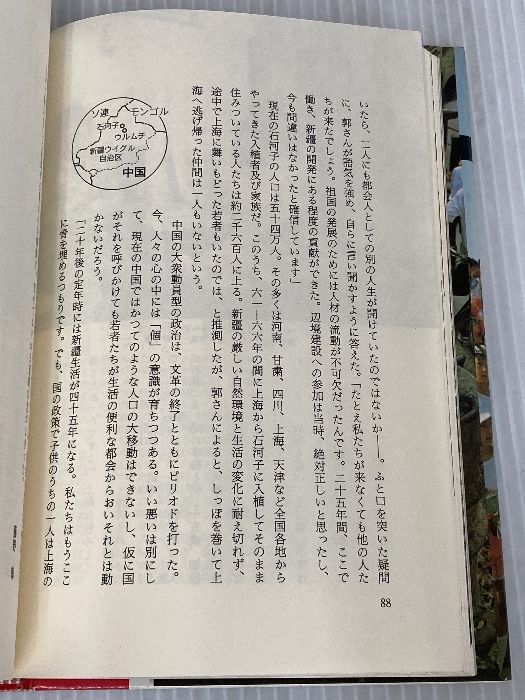 いたら、二人にも都会人としての別の人生が開けていたのではないか――。ふと口を突いた疑問
に、郭さんが語気を強め、自らに言い聞かすように答えた。「たとえ私たちが来なくても他の人た
ちが来たでしょう。祖国の発展のためには人材の流動が不可欠だったんです。二十五年間、ここで
働き、新疆の開発にある程度の貢献ができた。辺境建設への参加は当時、絶対正しいと思ったし、
今も間違いはなかったと確信しています」
現在の石河子の人口は五十四万人。その多くは河南、甘粛、四川、上海、天津など全国各地から
やってきた入植者及び家族だ。このうち、六一―六六年の間に上海から石河子に入植してそのまま
住みついている人たちは約二千六百人に上る。新疆の厳しい自然環境と生活の変化に耐え切れず、
途中で上海に舞いもどった若者もいたのでは、と推測したが、郭さんによると、しっぽを巻いて上
海へ逃げ帰った仲間は一人もいないという。
中国の大衆動員型の政治は、文革の終了とともにピリオドを打った。
今、人々の心の中には「個」の意識が育ちつつある。いい悪いは別にし
て、現在の中国ではかつてのような人口の大移動はできないし、仮に国
がそれを呼びかけても若者たちが生活の便利な都会からおいそれとは動
かないだろう。
「二十年後の定年時には新疆生活が四十五年になる。私たちはもうここ
に骨を埋めるつもりです。でも、国の政策で子供のうちの一人は上海の
ソ連
モンゴル
石河子
ウルムチ
新疆ウイグル
自治区
中国
88